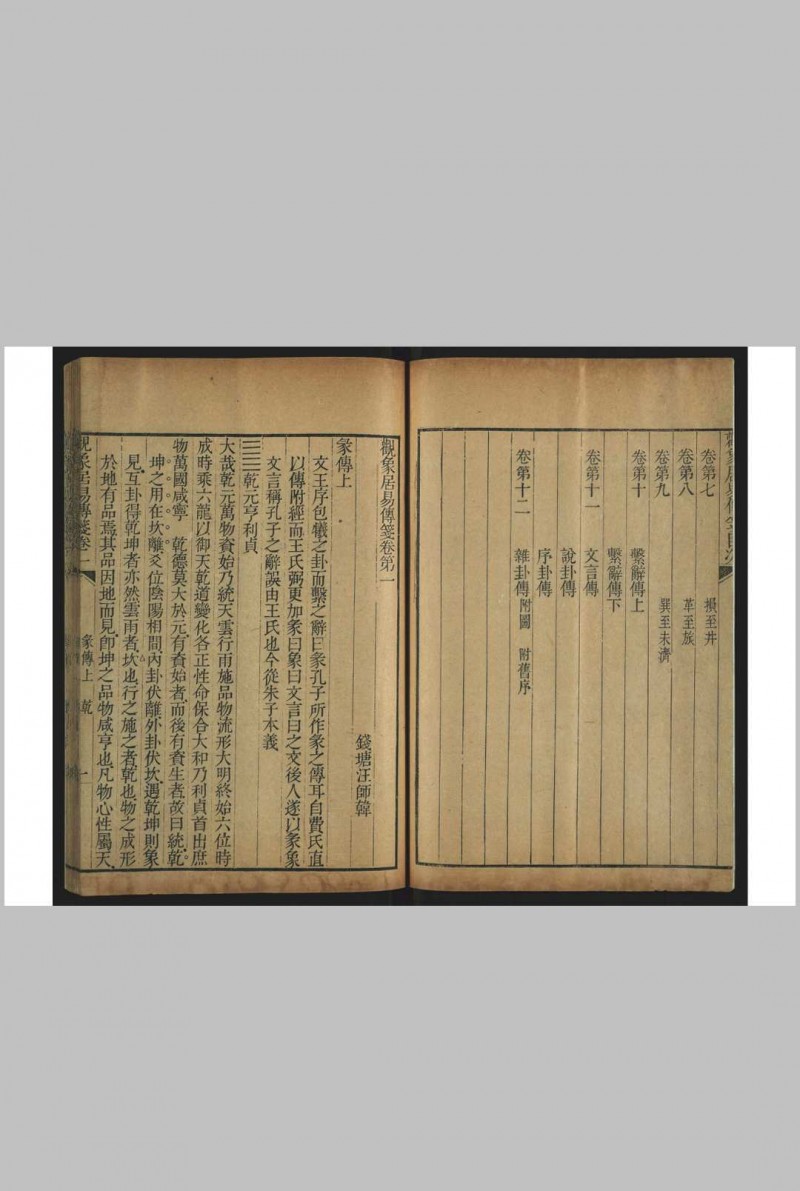 卷第七 損至井
卷第八 革至旅
卷第九 巽至未濟
卷第十 繫辭傳上
繫辭傳下
卷第十一 文言傳
說卦傳
序卦傳
卷第十二 雜卦傳 附圖 附舊序
觀象居易傳箋卷第一
錢塘汪師韓
彖傳上
文王序包犧之卦而繫之辭曰彖孔子所作彖之傳耳自費氏直
以傳附經而王氏弼更加彖曰象曰文言曰之文後人遂以彖象
文言稱孔子之辭誤由王氏也今從朱子本義
☰☰乾元亨利貞
大哉乾元萬物資始乃統天雲行雨施品物流形大明終始六位時
成時乘六龍以御天乾道變化各正性命保合大和乃利貞首出庶
物萬國咸寧 乾德莫大於元有資始者而後有資生者故曰統乾
坤之用在坎離爻位陰陽相間內卦伏離外卦伏坎遇乾坤則象
見互卦得乾坤者亦然雲雨者坎也行之施之者乾也物之成形
於地有品焉其品因地而見卽坤之品物咸亨也凡物心性屬天
觀象居易傳箋卷一 彖傳上 乾 一